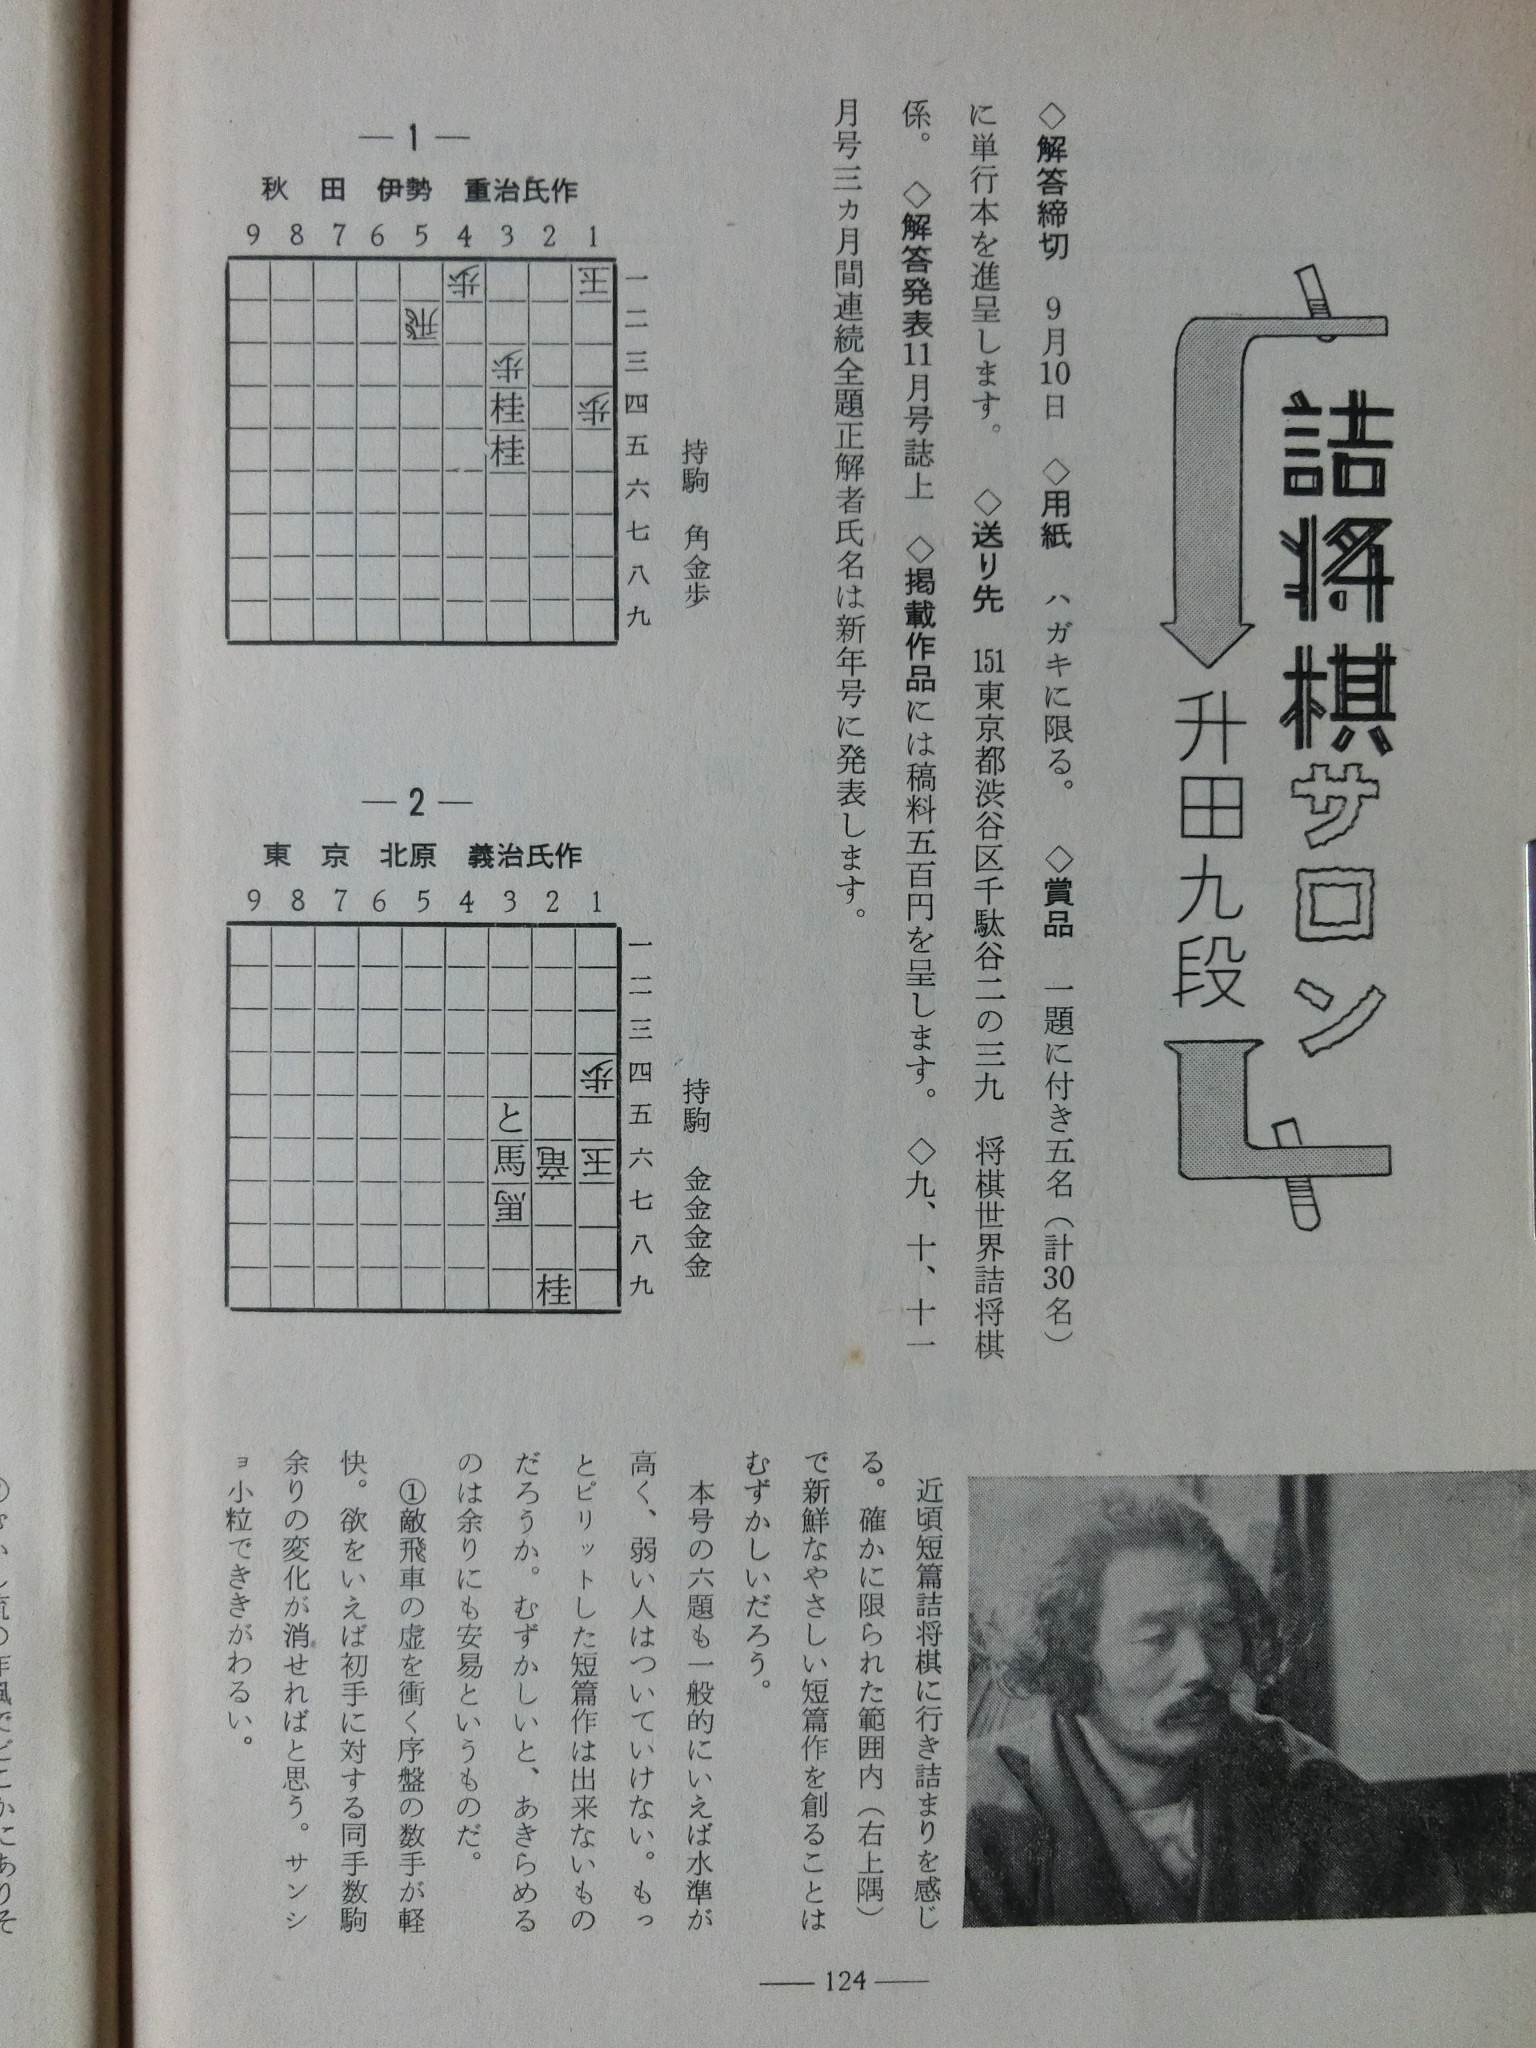 詰将棋サロン
升田九段
◇解答締切　9月10日　◇用紙　ハガキに限る。　◇賞品　一題に付き五名（計30名）
に単行本を進呈します。　◇送り先　151東京都渋谷区千駄谷二の三九　将棋世界詰将棋
係。　◇解答発表11月号誌上　◇掲載作品には稿料五百円を呈します。　◇九、十、十一
月号三カ月間連続全題正解者氏名は新年号に発表します。
—1—
秋田　伊勢　重治氏作
9 8 7 6 5 4 3 2 1
歩 玉 一
飛 二
歩 三
桂 歩 四
桂 五
六
七
八
九
持駒　角金歩
—2—
東京　北原　義治氏作
9 8 7 6 5 4 3 2 1
一
二
三
歩 四
と 五
馬 竜 玉 六
馬 七
八
桂 九
持駒　金金金金
近頃短篇詰将棋に行き詰まりを感じ
る。確かに限られた範囲内（右上隅）
で新鮮なやさしい短篇作を創ることは
むずかしいだろう。
本号の六題も一般的にいえば水準が
高く、弱い人はついていけない。もっ
とピリットした短篇作は出来ないもの
だろうか。むずかしいと、あきらめる
のは余りにも安易というものだ。
①敵飛車の虚を衝く序盤の数手が軽
快。欲をいえば初手に対する同手数駒
余りの変化が消せればと思う。サンシ
ョ小粒でききがわるい。
—124—